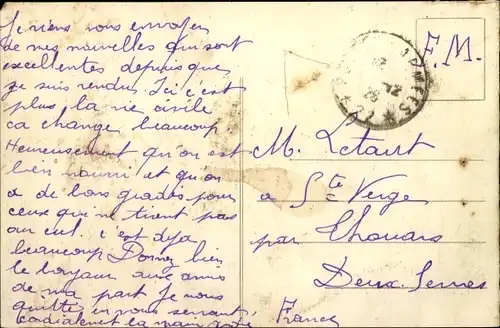 Je viens vous envoyer
de mes nouvelles qui sont
excellentes depuis que
je suis rendu. Ici c'est
plus la vie civile
ca change beaucoup.
Heureusement qu'on est
bien nourri et qu'on
a de bons gradés pour
ceux qui ne tirent pas
au cul. c'est deja
beaucoup. Donnez bien
le bonjour aux amis
de ma part Je vous
quitte en vous serrant
cordialement la main
F.M.
M. Letart
a Ste Verge
par Thouars
Deux-Sevres
France